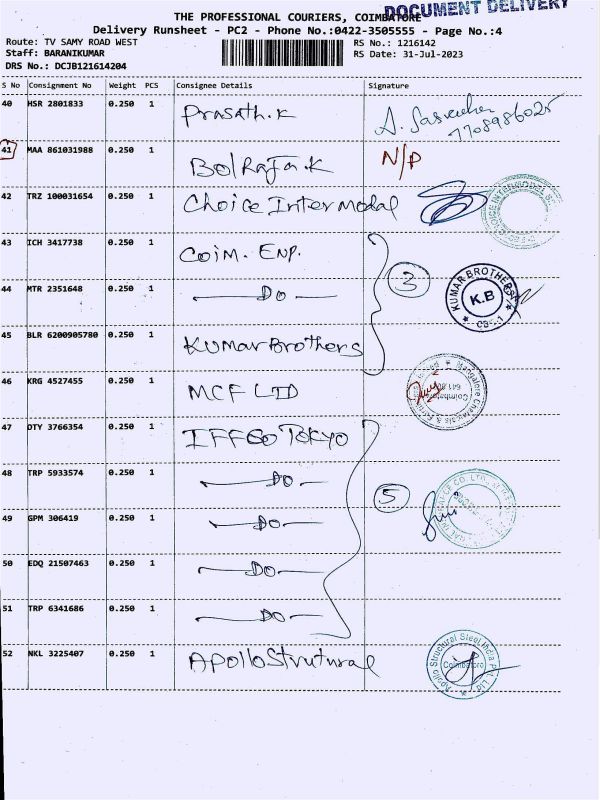 THE PROFESSIONAL COURIERS, COIMBATORE
DOCUMENT DELIVERY
Delivery Runsheet - PC2 - Phone No.:0422-3505555 - Page No.:4
Route: TV SAMY ROAD WEST RS No.: 1216142
Staff: BARANIKUMAR RS Date: 31-Jul-2023
DRS No.: DCJB121614204
S No Consignment No Weight PCS Consignee Details Signature
40 HSR 2801833 0.250 1 Prasath.K
7708986025
41 MAA 861031988 0.250 1 BolRaja.K N/P
42 TRZ 100031654 0.250 1 Choice Intermodal
43 ICH 3417738 0.250 1 Coim. Enp.
3
44 MTR 2351648 0.250 1 DO KUMAR BROTHERS K.B
45 BLR 6200905780 0.250 1 KUMar Brothers
46 KRG 4527455 0.250 1 MCF LTD Mangalore Chemicals & Coimbatore
47 OTY 3766354 0.250 1 IFFGO TOKYO
48 TRP 5933574 0.250 1 DO
5
49 GPM 306419 0.250 1 DO
50 EDQ 21507463 0.250 1 DO
51 TRP 6341686 0.250 1 DO
52 NKL 3225407 0.250 1 Apollo Strutural Apollo Structural Steel India Pvt. Ltd Coimbatore